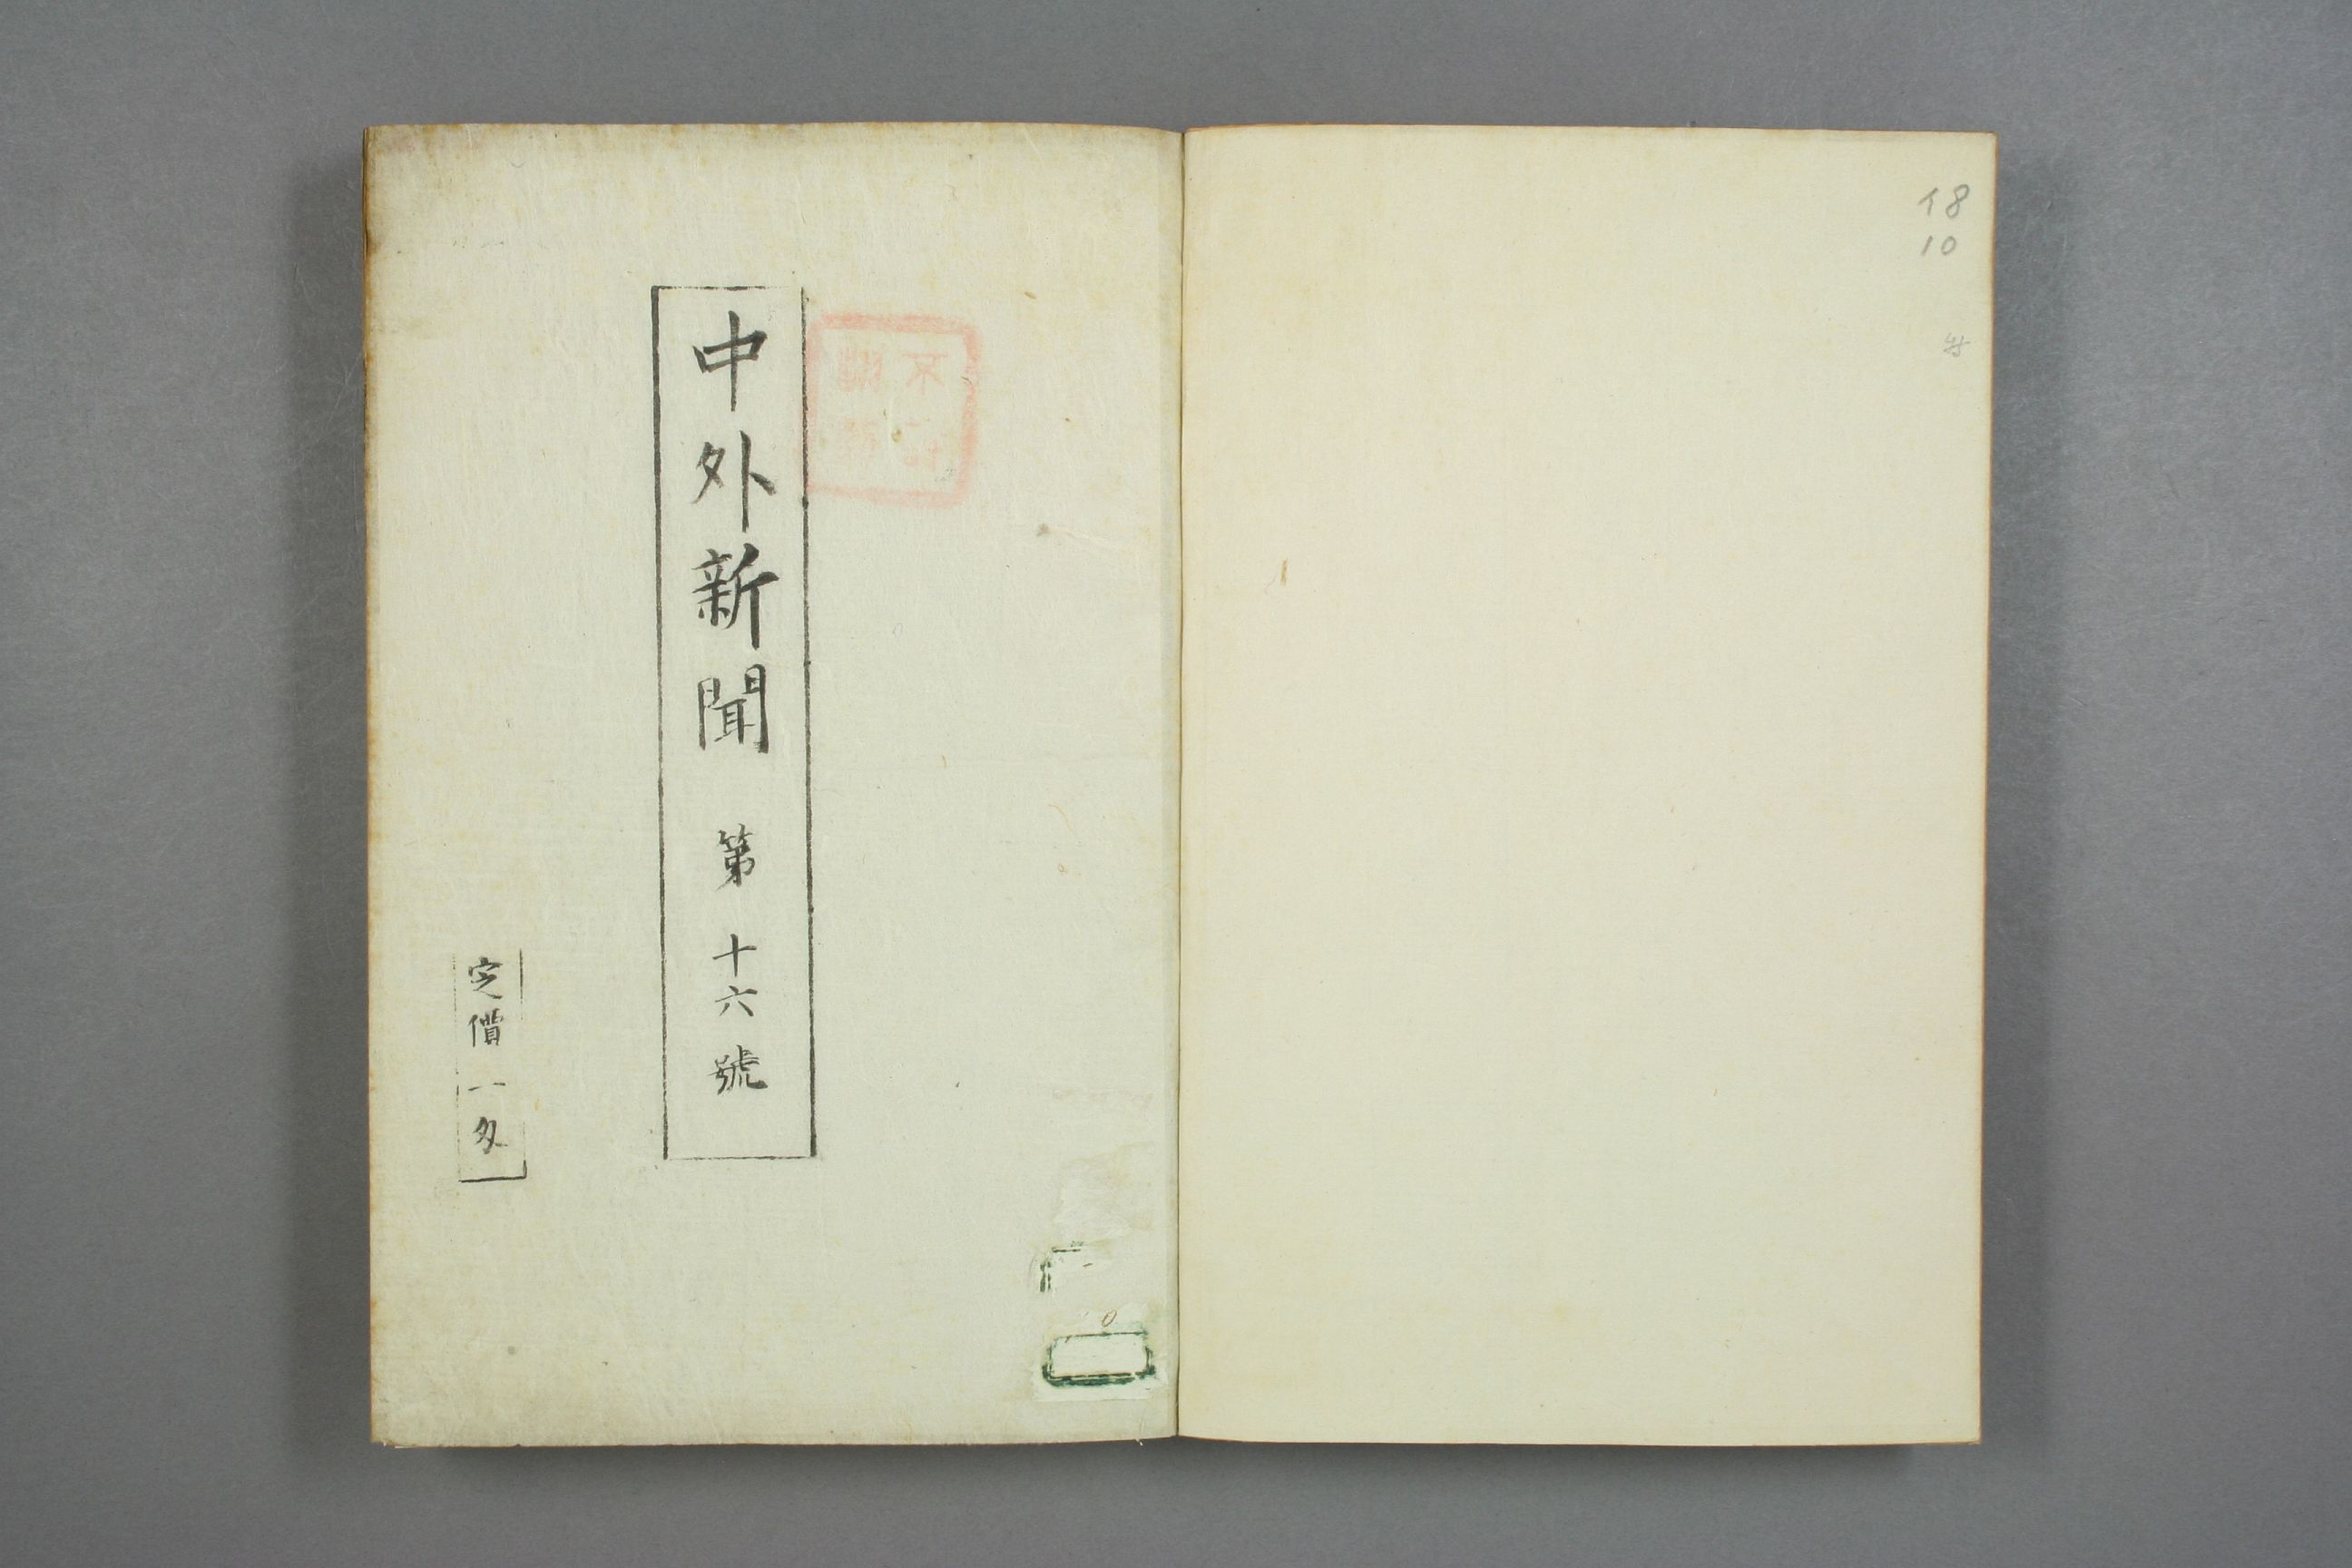 18
10
中外新聞 第十六號
定價一匁